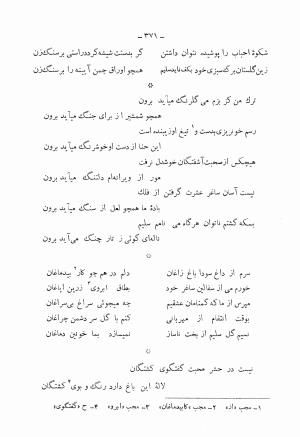 - ۳۷۱ -
شکوهٔ احباب را پوشیده نتوان داشتن گر بدست شیشه گر دد راستی بر سنگ زن
زین گلستان بر گ سبزی خود بکف ناید سلیم همچو اوراق چمن آیینه را بر سنگ زن
*
ترك من کز بزم می گلرنگ میآید برون
همچو شمشیر از برای جنگ میآید برون
رسم خونریزی بدست و تیغ او زیبنده است
این حنا از دست او خوش رنگ میآید برون
هیچکس از صحبت آشفتگان خوشدل نرفت
مور از ویرانه‌ام دلتنگ میآید برون
نیست آسان ساغر عشرت گرفتن از فلك
بادهٔ ما همچو لعل از سنگ میآید برون
بسکه گشتم ناتوان هرگاه می نالم سلیم
ناله‌ای گوئی ز تار چنگ می‌آید برون
*
سرم از داغ سودا باغ زاغان دلم در هم چو کار۲ بیدماغان
خورم می از سفالین ساغر خود بطاق ابروی۳ زرین ایاغان
مپرس از ما که گمنامان عشقیم چه میجوئی سراغ بی‌سراغان
بوقت انتقام از مهربانی کنم با گل سر دشمن چراغان
سلیم گل سلیم از بخت ناساز نمیسازد بما خونین دماغان
*
نیست در حشر محبت گفتگوی کشتگان
لالهٔ این باغ دارد رنگ و بوی۴ کشتگان
۱- مجب «از» ۲- مجب «کاربیدماغان» ۳- مجب «ابرو» ۴- ح «گفتگوی»